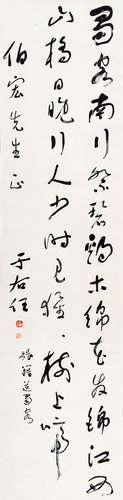 蜀客南行祭碧鸡木绵花发锦江西
山桥日晚行人少时见猩猩树上啼
伯宏先生正
于右任
张籍送蜀客